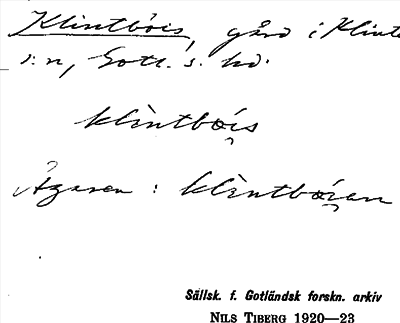 Klintbóis, gård i Klinte
s:n, Gotl. s. hd.
klìntbói̯s
Ägaren : klìntbói̯an
Sällsk. f. Gotländsk forskn. arkiv
NILS TIBERG 1920—23